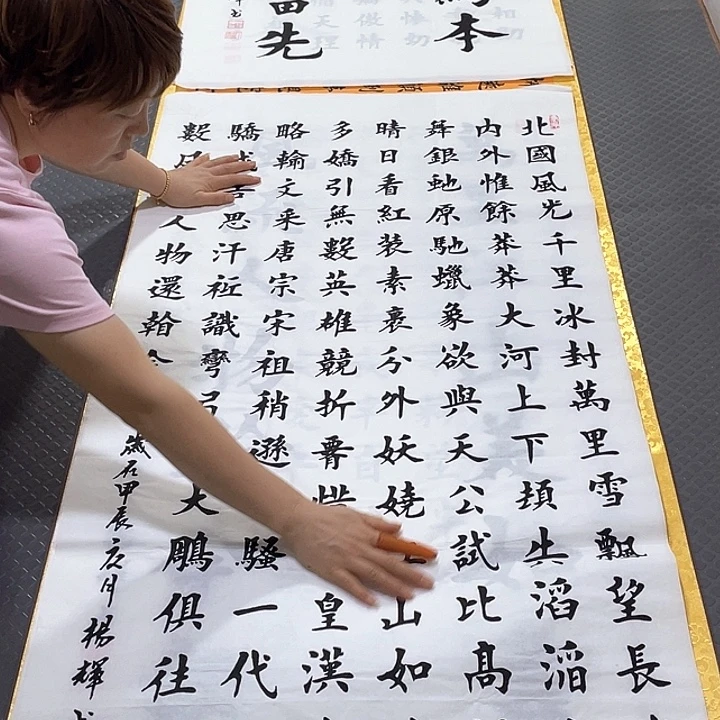 本
先
北國風光千里冰封萬里雪飄望長
內外惟餘莽莽大河上下頓失滔滔
舞銀蛇原馳蠟象欲與天公試比高
晴日看紅裝素裹分外妖嬈山如
多嬌引無數英雄競折腰惜皇漢
略輸文采唐宗宋祖稍遜騷一代
驕成吉思汗祗識彎弓大鵰俱往
數人物還看今
歲在甲辰夏月楊輝